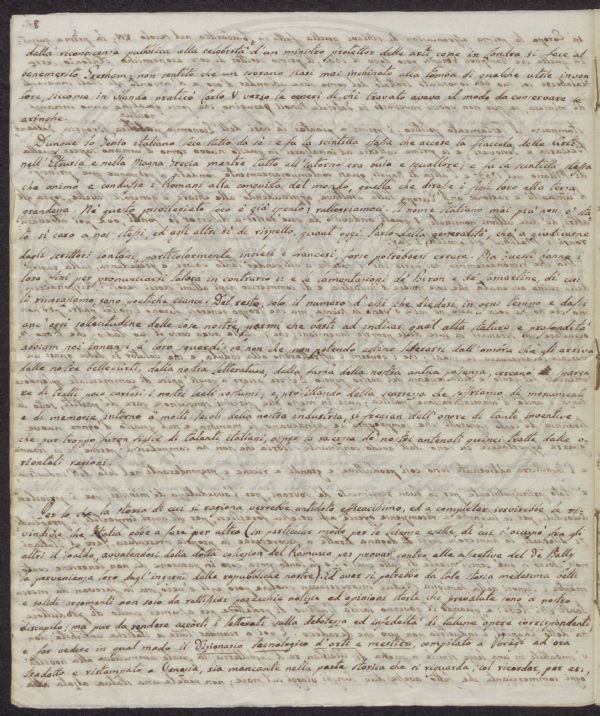 8.
dalla riconoscenza pubblica alla celebrità d'un ministro protettor delle arti, come in Londra si fece al
benemerito Gresham; non sentite che un sovrano siasi mai inchinato alla tomba di qualche utile inven
tore, siccome in Olanda praticò Carlo V. verso le ceneri di chi trovato aveva il modo da conservare le
aringhe.
Dunque lo spirito italiano fece tutto da sè: e fu la scintilla stessa che accese la fiaccola delle arti
nell'Etruria e nella Magna Grecia mentre tutto all'intorno era buio e squallore; e fu la scintilla stessa
che animò e condusse i Romani alla conquista del mondo, quella che diresse i figli loro alla terra
grandezza. Nè questo privilegiato foco è già spento: rallegriamoci. Il nome italiano mai più non è sta
to sì caro a noi stessi, ed agli altri sì di rispetto, quant'oggi. Parlo della generalità, chè a giudicarne
dagli scrittori lontani, particolarmente inglesi e francesi, forse potrebbesi errare. Ma questi hanno i
loro fini per pronunciarsi talora in contrario: e le lamentazioni de' Byron e de' Lamartine, di cui
li ringraziamo, sono poetiche ciance. Del resto, solo il numero d'essi che diedesi in ogni tempo e dassi
anc' oggi sollecitudine delle cose nostre, parmi che basti ad indicar quel alta statura e profondità
abbiam noi innanzi a' loro sguardi: se non che non potendo costoro liberarsi dall'ombra che gli arriva
dalle nostre belle-arti, dalla nostra letteratura, dalla fama della nostra antica possanza, cercano
re di tratti poco cortesi i nostri begli costumi; e profittando della scarsezza che soffriamo di monumenti
e di memorie intorno a' molti secoli della nostra industria, si fregian dell'onore di tante inventive
che pur troppo furon figlie di talenti italiani, o per la sagacia de' nostri antenati quinci tratte dalle o-
rientali regioni.
Per lo che la storia di cui si ragiona verrebbe antidoto efficacissimo, ed a completar servirebbe la ri-
vindicia che Italia ebbe a fare per altro (in particolar modo per le scienze quelle di cui s'occupò fra gli
altri il Foaldo, avvalendosi della dotta collezion del Ramusio per provar, contro alle assertive del De Pally,
la provenienza loro dagl'ingegni delle repubbliche nostre). Ricavar si potrebbe da tale storia medesima belli
e solidi argomenti non solo da rettificar parecchie notizie ed opinioni storte che prevalute sono a nostro
discapito; ma pur da rendere accorti i letterati sulla debolezza ed infedeltà di talune opere corrispondenti
e far vedere in qual modo il Dizionario tecnologico d'arti e mestieri, compilato a Parigi ed ora
tradotto e ristampato a Venezia, sia mancante nella parte storica che ci riguarda, col ricordar, per es.,